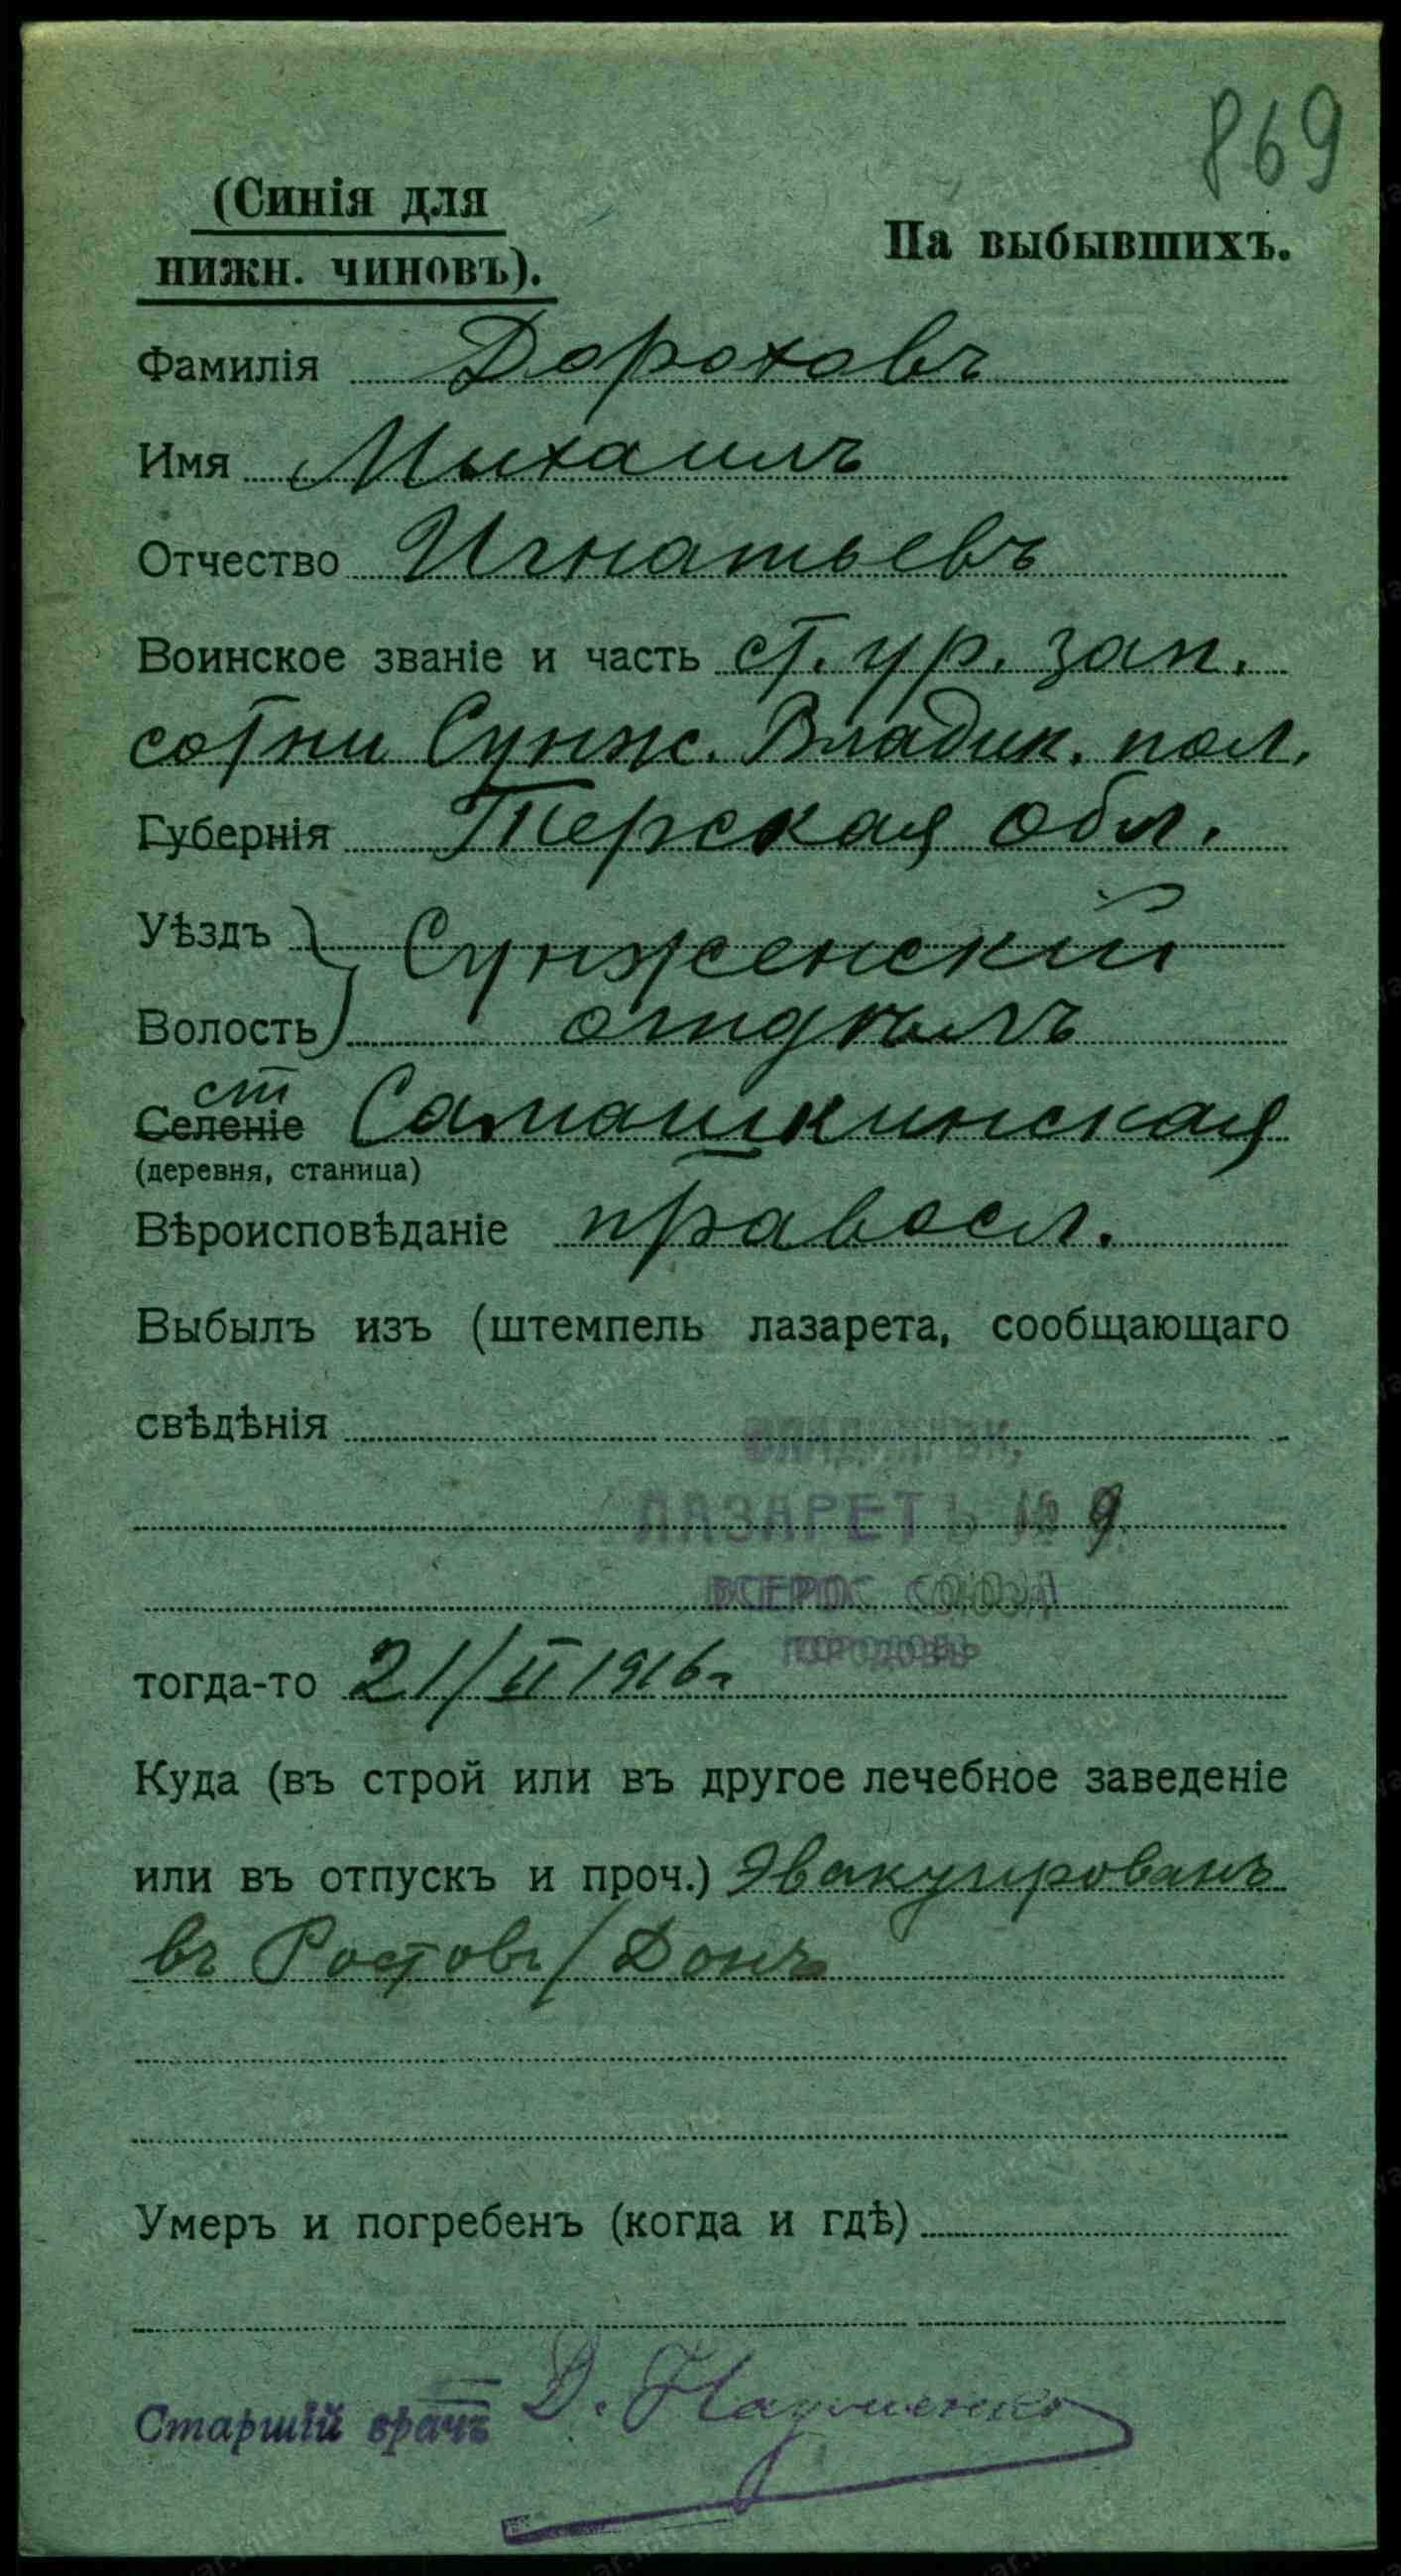 869
(Синія для
нижн. чиновъ).
На выбывшихъ.
Фамилія Дороховъ
Имя Михаилъ
Отчество Игнатьевъ
Воинское званіе и часть ст. ур. зап.
сотни Сунж. Владик. пол.
Губернія Терская обл.
Уѣздъ Сунженский
Волость отдѣлъ
ст
Селеніе Самашкинская
(деревня, станица)
Вѣроисповѣданіе правосл.
Выбылъ изъ (штемпель лазарета, сообщающаго
свѣдѣнія
ЛАЗАРЕТЪ № 9
ВСЕРОС. СОЮЗА
ГОРОДОВЪ
тогда-то 21/II 1916 г
Куда (въ строй или въ другое лечебное заведеніе
или въ отпускъ и проч.) Эвакуированъ
въ Ростовъ/Донъ
Умеръ и погребенъ (когда и гдѣ)
Старшій врачъ Д.